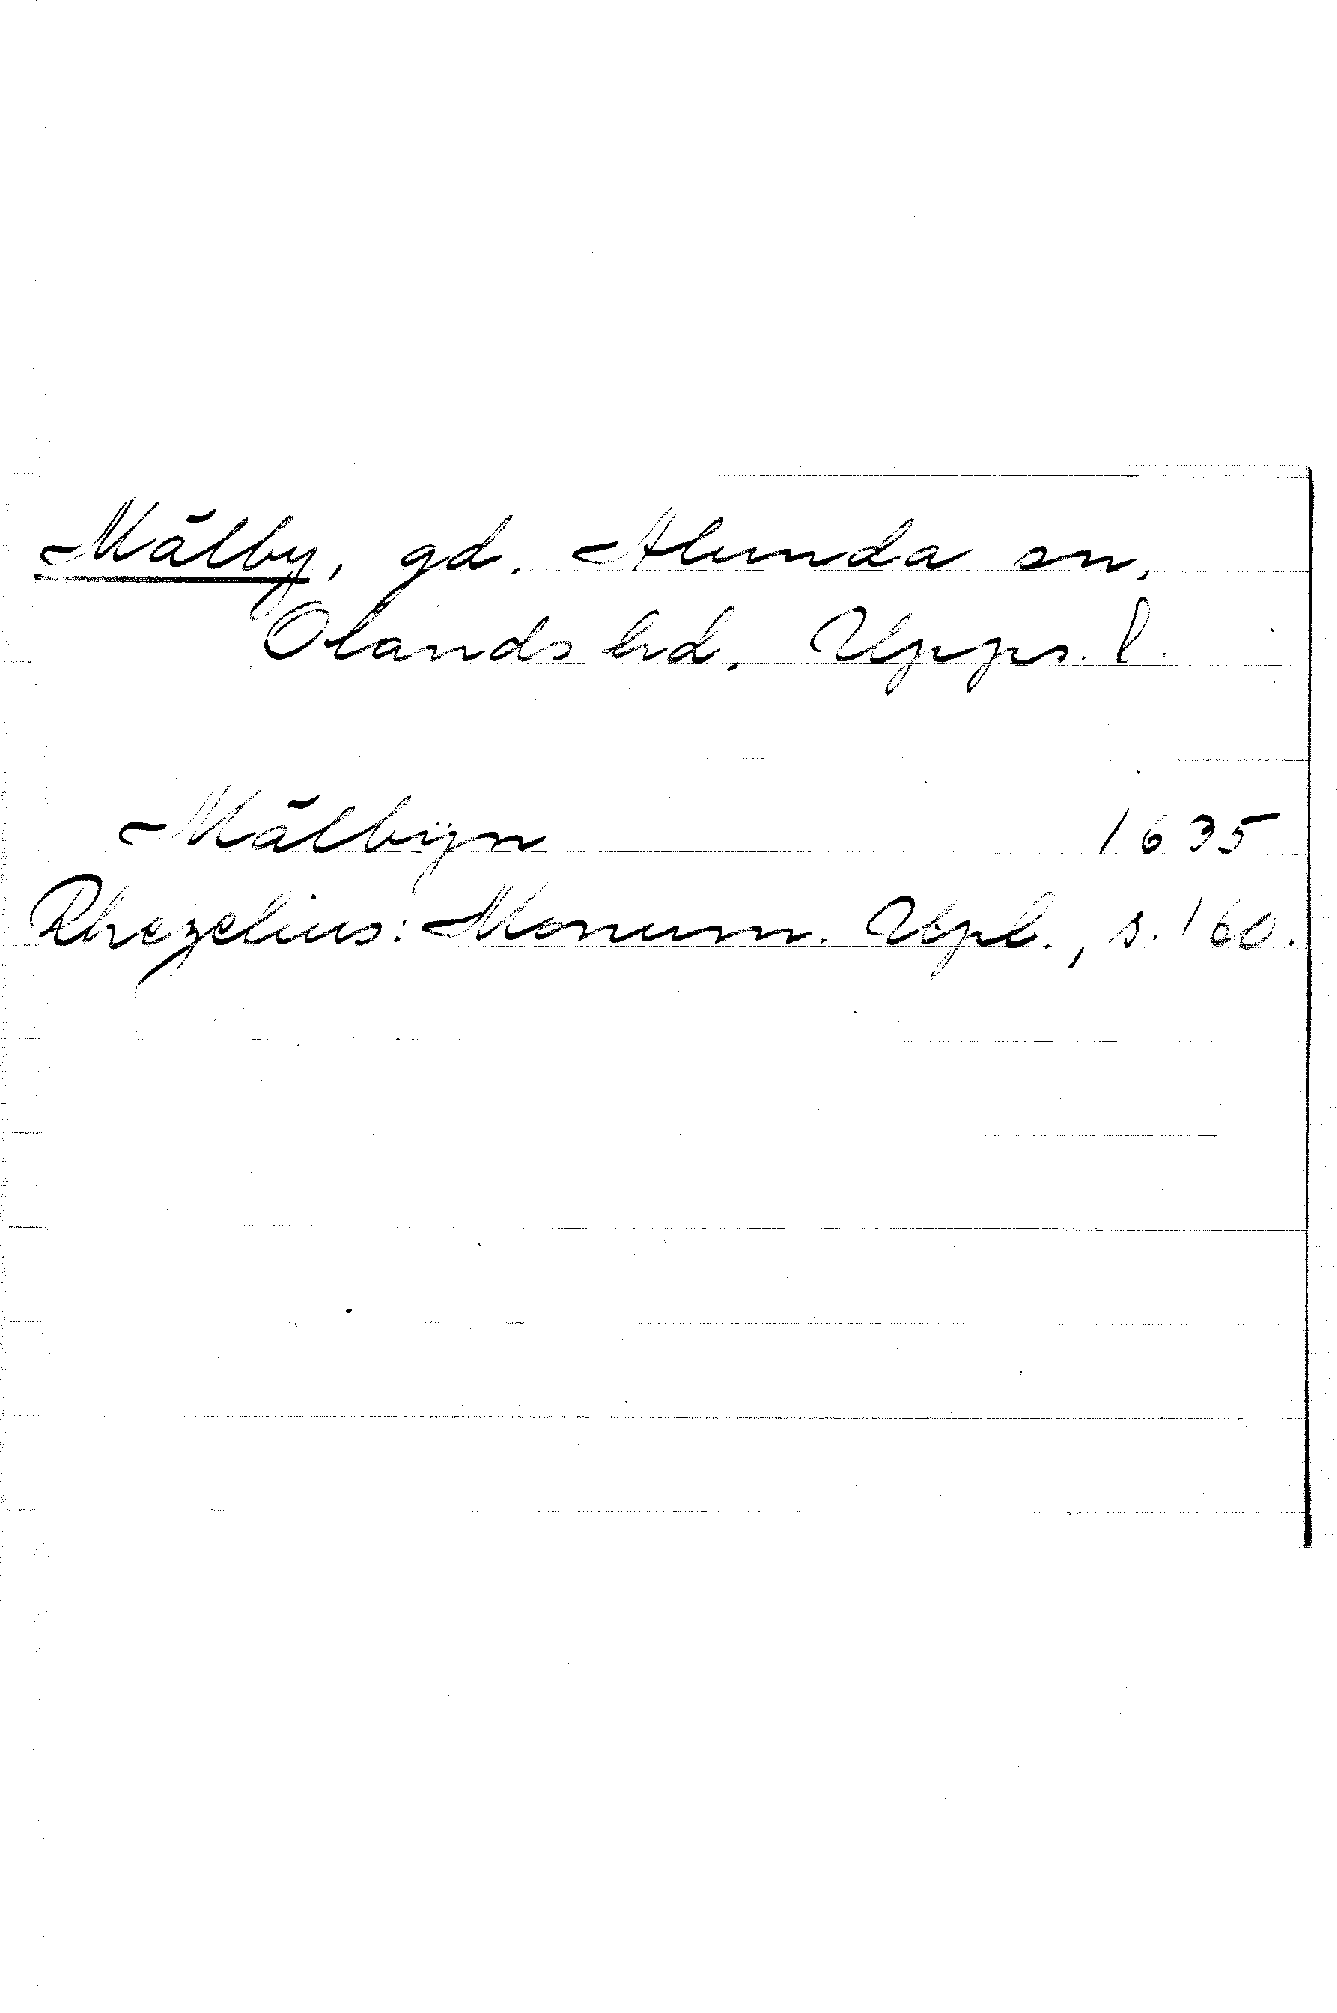 Mälby, gd. Alunda sn,
Olands hd. Upps. l.
Mälbÿn 1635
Rhezelius: Monum. Upl., s. 160.